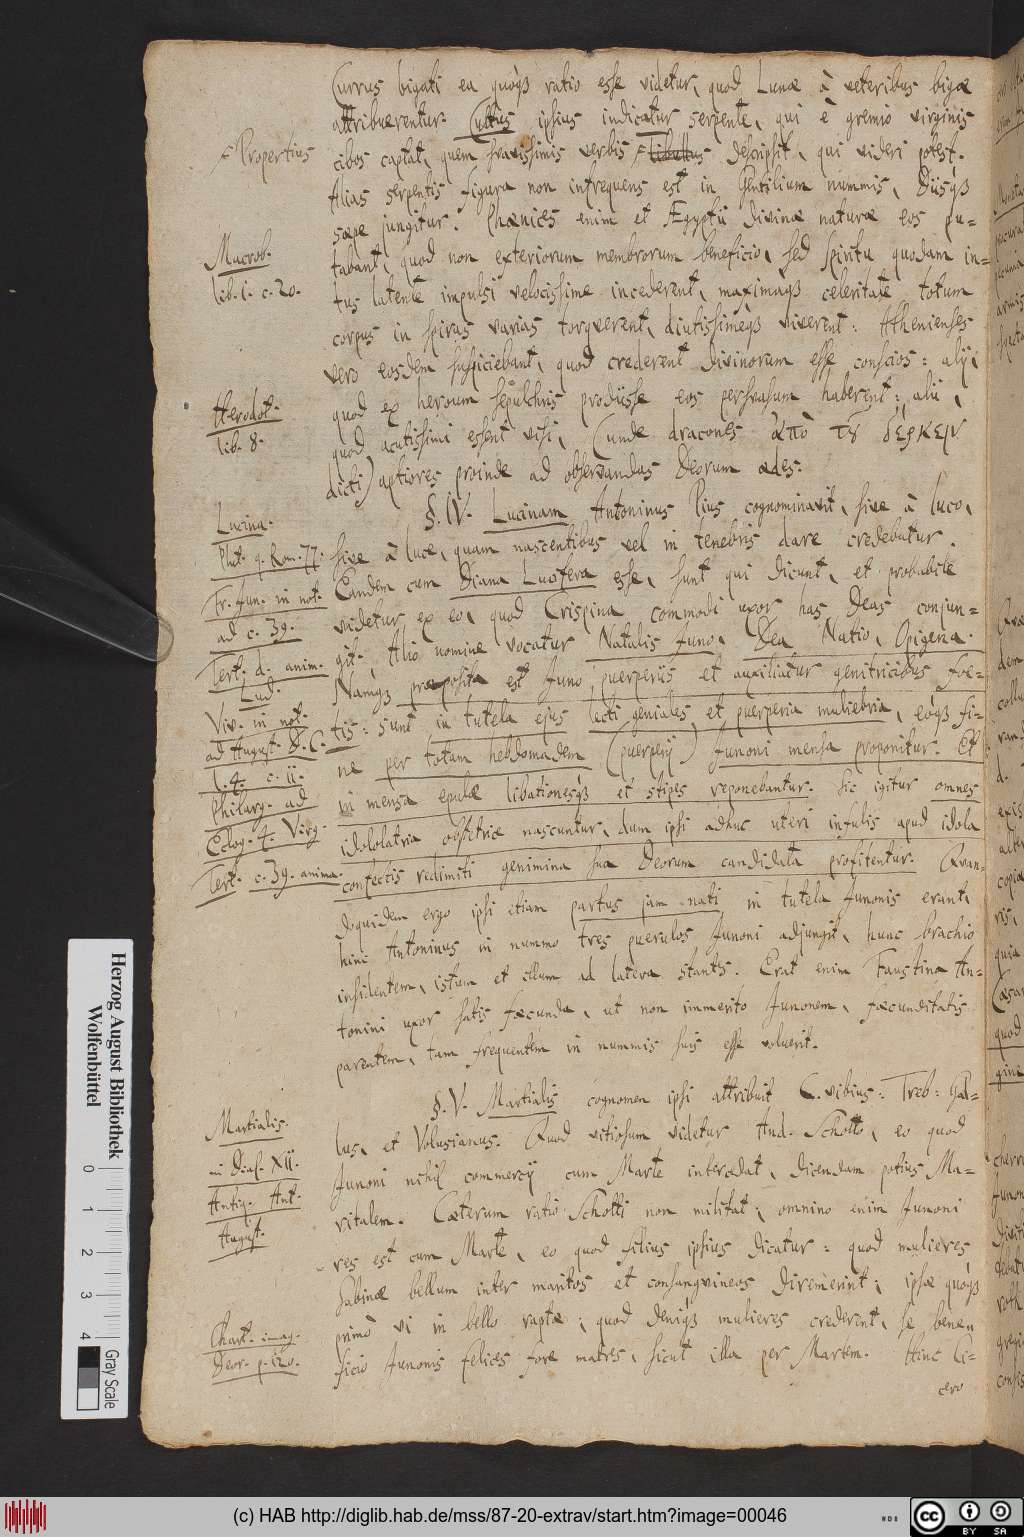 Currus bigati ea quoq́ȝ ratio esse videtur, quod Lunæ à veteribus bigæ
attribuerentur. Cultus ipsius indicatur serpente, qui è gremio virginis
F Propertius
cibos captat, quem suavissimis verbis F Tibullus descripsit, qui videri potest.
Alias serpentis figura non infrequens est in Gentilium nummis, Diisq́ȝ
sæpe jungitur. Phænices enim et Ægyptii divinæ naturæ eos pu=
Macrob.
tabant, quod non exteriorum membrorum beneficio, sed spiritu quodam in=
lib. 1. c. 20.
tus latente impulsi velocissime incederent, maximaqȝ celeritate totum
corpus in spiras varias torqverent, diutissimeq́ȝ viverent: Athenienses
vero eosdem suspiciebant, quod crederent divinorum esse conscios: alij,
Herodot.
quod ex heroum sepulchris prodiisse eos persvasum haberent; alii,
lib. 8.
quod acutissimi essent visi, (unde dracones ἀπὸ τȣ δερκειν
dicti) aptiores proinde ad observandas Deorum ædes.
Lucina.
§. IV. Lucinam Antoninus Pius cognominavit, sive à luco,
Plut. q. Rom. 77.
sive à luce, quam nascentibus vel in tenebris dare credebatur.
Fr. Jun. in not.
Eandem cum Diana Lucifera esse, sunt qui dicunt, et probabile
ad c. 39.
videtur ex eo, quod Crispina commodi uxor has Deas conjun=
Tert. d. anim.
git. Alio nomine vocatur Natalis Juno, Dea Natio, Opigena.
Lud.
Namqȝ præposita est Juno puerperiis et auxiliatur genitricibus foe=
Viv. in not.
tis: sunt in tutela ejus lecti geniales et puerperia muliebria, eoq́ȝ fi=
ad August. d. C.
ne per totam hebdomadem (puerperij) Junoni mensa proponitur. Et
l. 4. c. 11.
in mensa epulæ libationesq́ȝ et stipes reponebantur. Sic igitur omnes
Philarg. ad
Eclog. 4. Virg.
idololatria obstetrice nascuntur, dum ipsi adhuc uteri infulis apud idola
Tert. c. 39. anima.
confectis redimiti genimina sua Deorum candidata profitentur. Qvan=
doquidem ergo ipsi etiam partus jam nati in tutela Junonis erant,
hinc Antoninus in nummo tres puerulos Junoni adjungit, hunc brachio
insidentem, istum et illum ad latera stants. Erat enim Faustina An=
tonini uxor satis fæcunda, ut non immerito Junonem, fæcunditatis
parentem, tam frequentem in nummis suis esse voluerit.
Martialis.
§. V. Martialis cognomen ipsi attribuit C. vibius: Treb: Gal=
in Dial. XII.
lus, et Volusianus. Quod vitiosum videtur And. Schotto, eo quod
Antiq. Ant.
Junoni nihil commercij cum Marte intercedat, dicendam potius Ma=
August.
vitalem. Cæterum ratio Schotti non militat; omnino enim Junoni
res est cum Marte, eo quod filius ipsius dicatur: quod mulieres
Sabinæ bellum inter maritos et consangvineos diremerint; ipsæ quoq́ȝ
Chart. imag.
primò vi in bello raptæ; quod deniq́ȝ mulieres crederent, se bene=
Deor. p. 120.
ficio Junonis felices fore matres, sicut illa per Martem. Hinc Ci=
cero
Herzog August Bibliothek
Wolfenbüttel
0 1 2 3 4
Gray Scale
(c) HAB http://diglib.hab.de/mss/87-20-extrav/start.htm?image=00046
CC BY SA